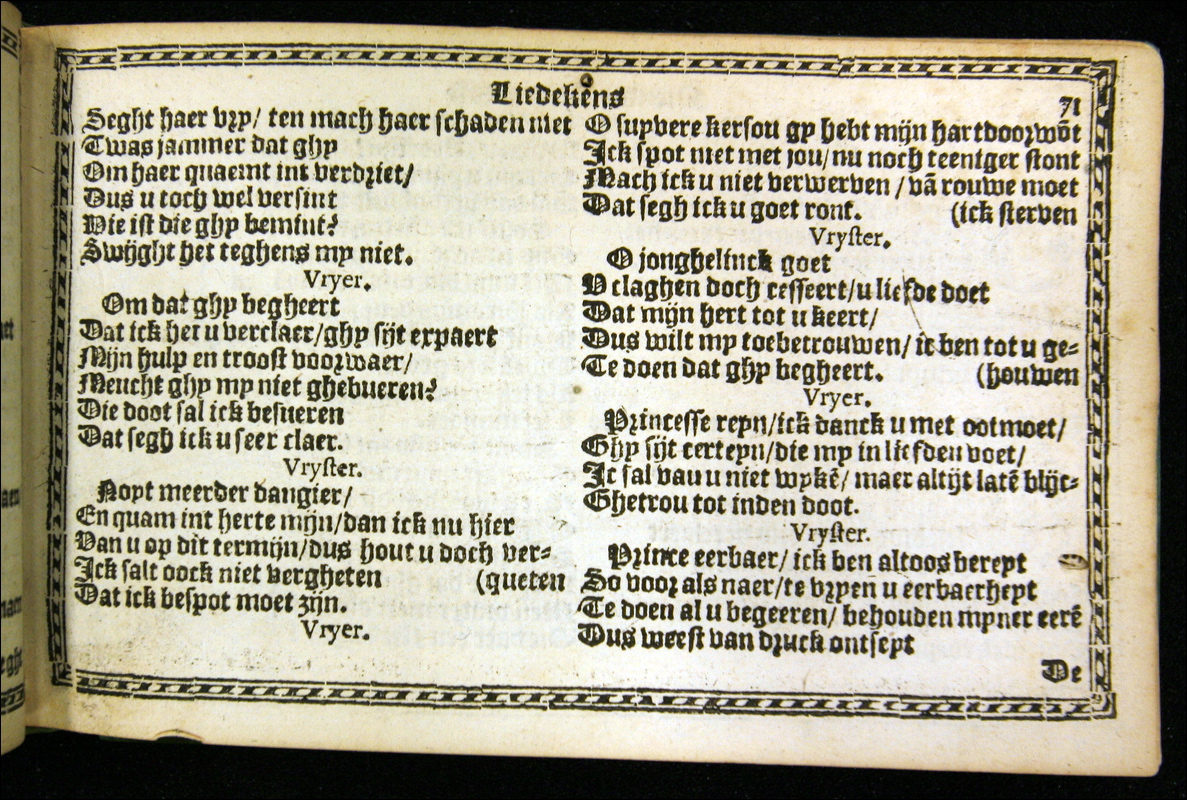 Liedekens
71
Seght haer vry/ ten mach haer schaden niet
Twas jammer dat ghy
Om haer quaemt int verdriet/
Dus u toch wel versint
Wie ist die ghy bemint?
Swijght het teghens my niet.
Vryer.
Om dat ghy begheert
Dat ick het u verclaer/ghy sijt expaert
Mijn hulp en troost voorwaer/
Meucht ghy my niet ghebueren?
Die doot sal ick besueren
Dat segh ick u seer claer.
Vryster.
Noyt meerder dangier/
En quam int herte mijn/dan ick nu hier
Van u op dit termijn/dus hout u doch ver-
Ick salt oock niet vergheten (queten
Dat ick bespot moet zijn.
Vryer.
O suyvere kersou gy hebt mijn hartdoorwõt
Ick spot niet met jou/nu noch teeniger stont
Mach ick u niet verwerven /vã rouwe moet
Dat segh ick u goet ront. (ick sterven
Vryster.
O jonghelinck goet
V claghen doch cesseert/u liefde doet
Dat mijn hert tot u keert/
Dus wilt my toebetrouwen/ ic ben tot u ge-
Te doen dat ghy begheert. (houwen
Vryer.
Princesse reyn/ick danck u met ootmoet/
Ghy sijt certeyn/die my in liefden voet/
Ic sal van u niet wykẽ/ maer altijt latẽ blijc-
Ghetrou tot inden doot.
Vryster.
Prince eerbaer/ ick ben altoos bereyt
So voor als naer/te vryen u eerbaerheyt
Te doen al u begeeren/ behouden myner eerẽ
Dus weest van druck ontseyt
De